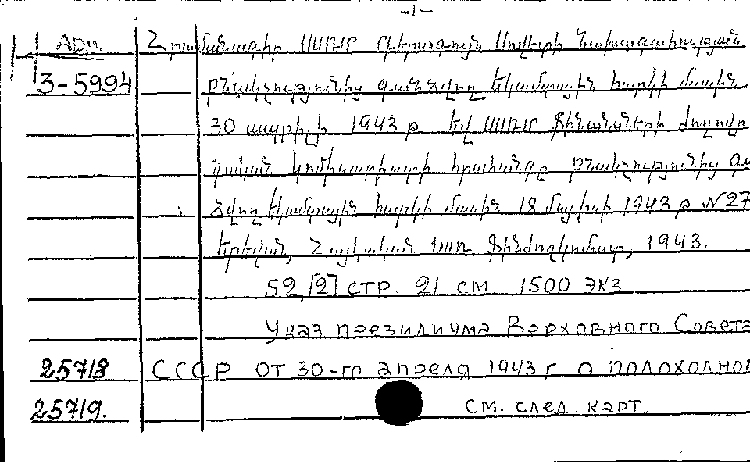 -1-
Арм. Հրամանագիր ՍՍՌՄ Գերագույն Սովետի Նախագահության
3-5994 բնակչությունից գանձվող եկամտային հարկի մասին
30 ապրիլի 1943 թ. եվ ՍՍՌՄ Ֆինանսների ժողովր
դական կոմիսարիատի հրահանգը բնակչությունից գա
նձվող եկամտային հարկի մասին 18 մայիսի 1943 թ. N27
Երեվան, Հայկական ՍՍՌ Ֆինժողկոմատ, 1943.
52,[2] стр. 21 см 1500 экз
Указ президиума Верховного Совета
25718 СССР от 30-го апреля 1943 г. о подоходном
25719. См. след. карт.